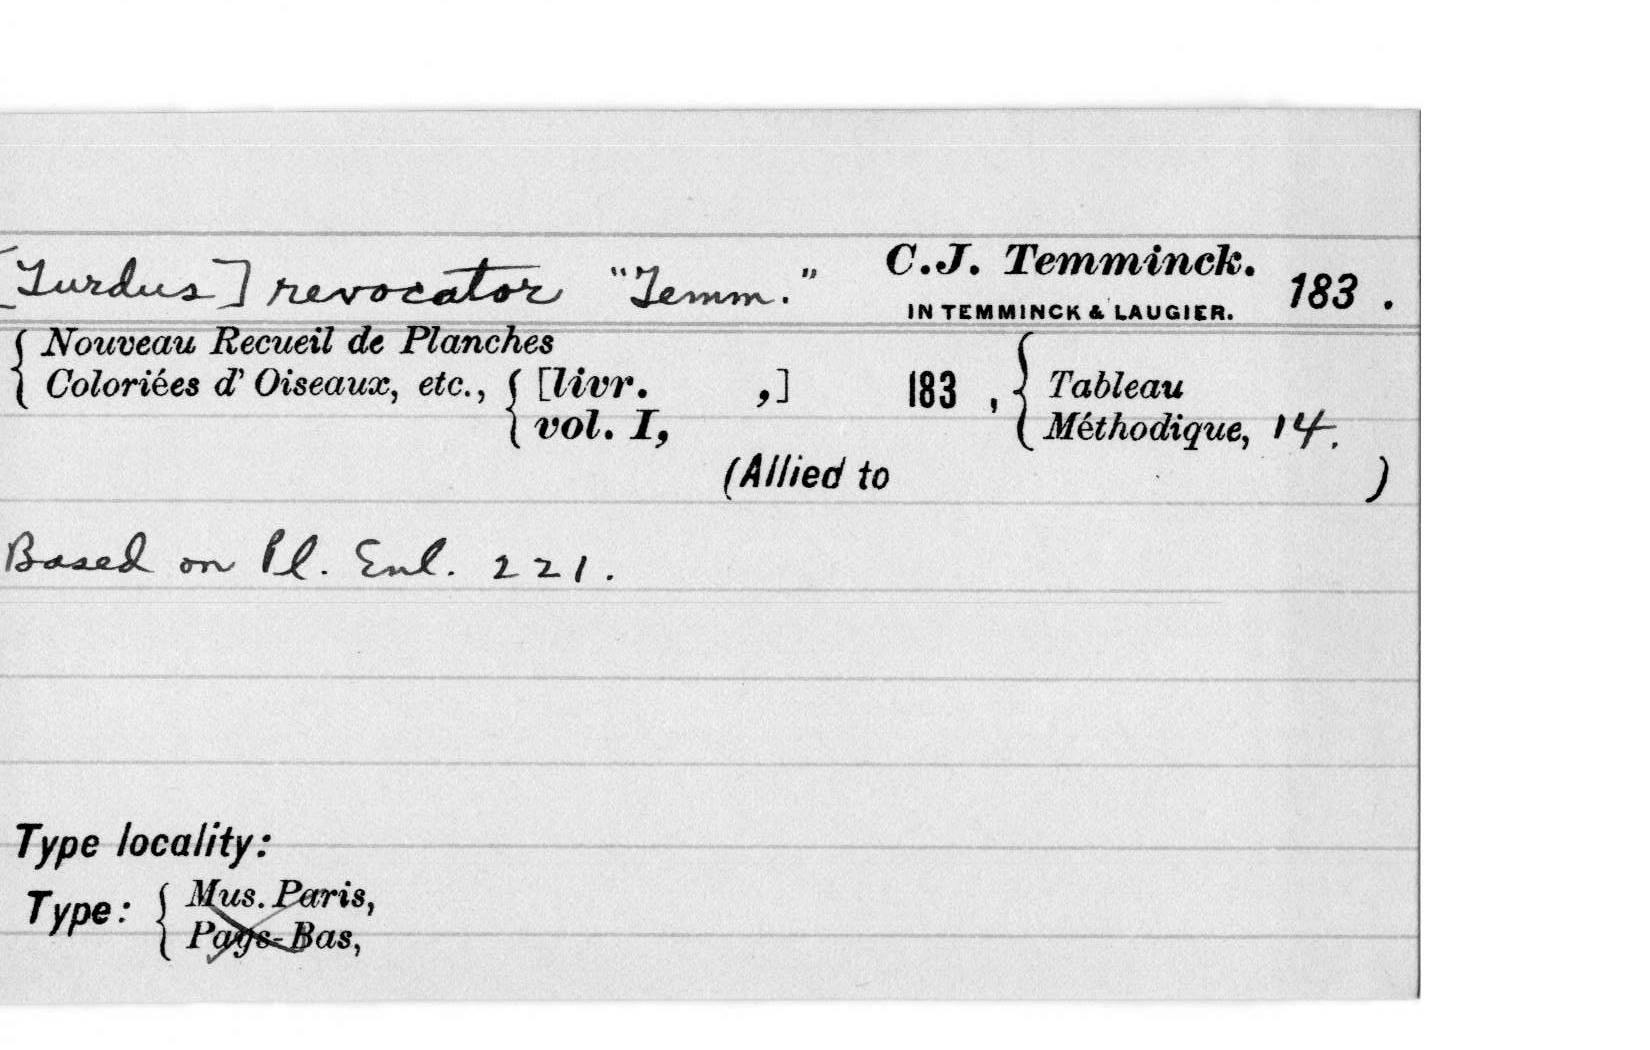 [Turdus] revocator "Temm." C.J. Temminck. 183 .
IN TEMMINCK & LAUGIER.
Nouveau Recueil de Planches
Coloriées d' Oiseaux, etc., [livr. ,] 183 , Tableau
vol. I, Méthodique, 14.
(Allied to )
Based on Pl. Enl. 221.
Type locality:
Type: Mus. Paris,
Pays-Bas,